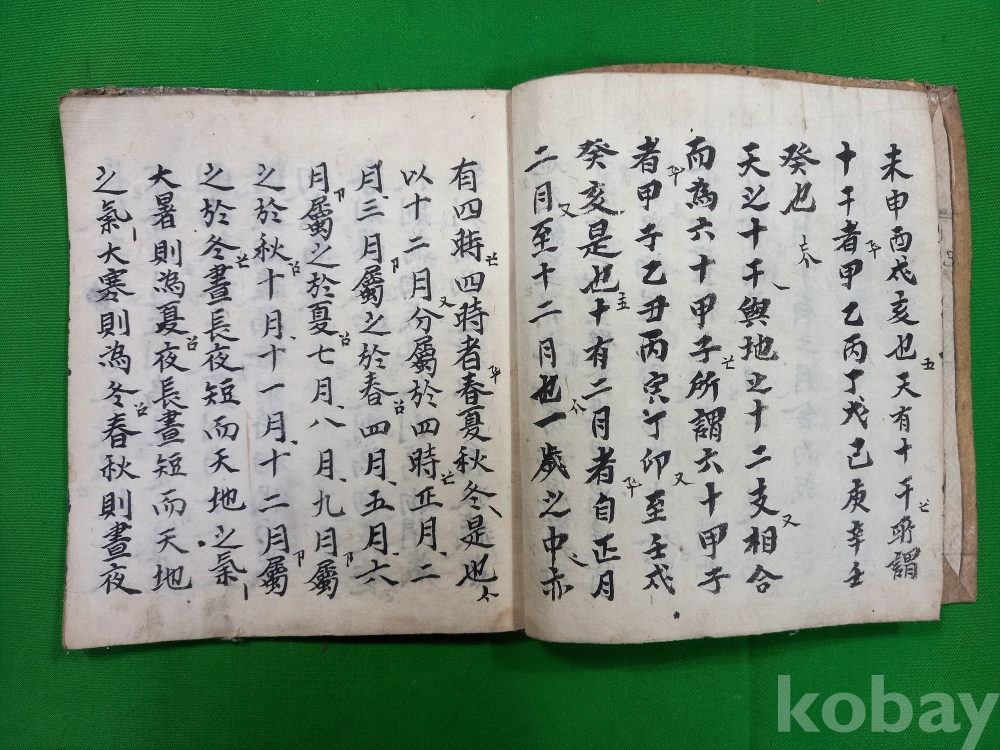 未申酉戌亥也天有十干所謂
十干者甲乙丙丁戊己庚辛壬
癸也
天之十干與地之十二支相合
而為六十甲子所謂六十甲子
者甲子乙丑丙寅丁卯至壬戌
癸亥是也十有二月者自正月
二月至十二月也一歲之中亦
有四時四時者春夏秋冬是也
以十二月分屬於四時正月二
月三月屬之於春四月五月六
月屬之於夏七月八月九月屬
之於秋十月十一月十二月屬
之於冬晝長夜短而天地之氣
大暑則為夏夜長晝短而天地
之氣大寒則為冬春秋則晝夜
kobay